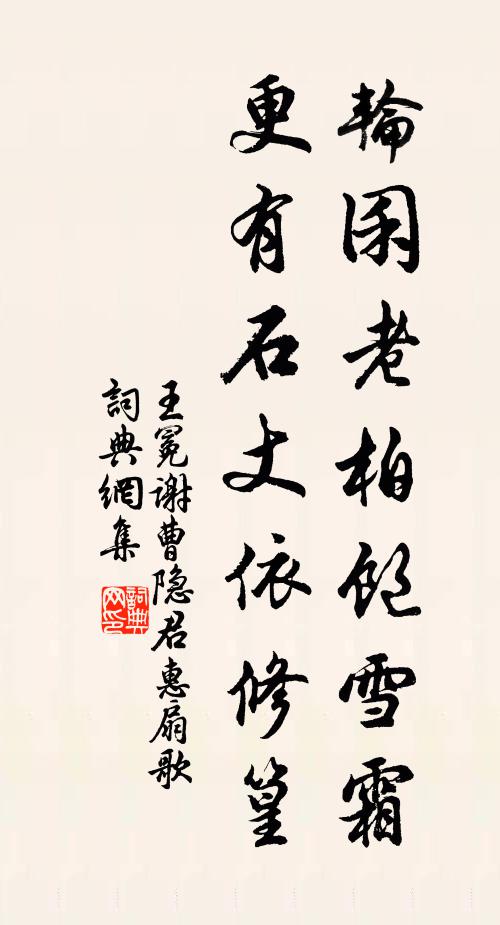 輪囷老柏飽雪霜
更有石丈依修篁
王冕謝曹隐君惠扇歌
詞典網集
詞典
网印